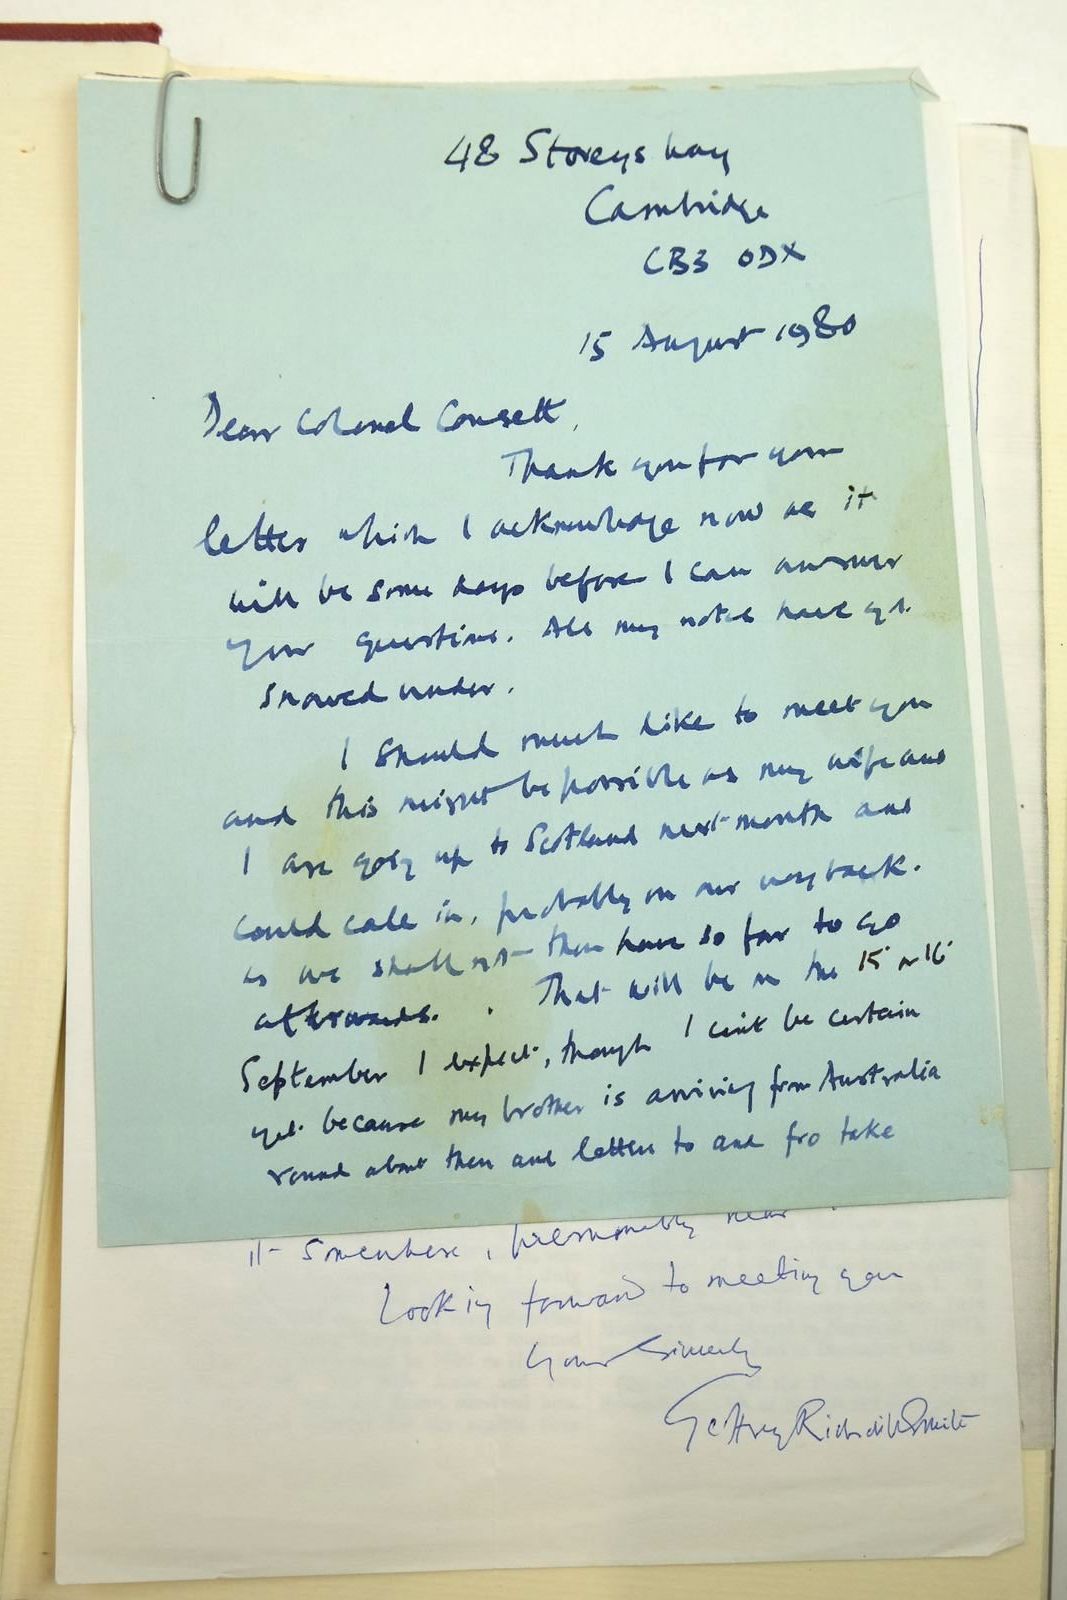 48 Storeys Way
Cambridge
CB3 0DX
15 August 1980
Dear Colonel Consett,
Thank you for your
letter which I acknowledge now as it
will be some days before I can answer
your questions. All my notes have got
snowed under.
I should much like to meet you
and this might be possible as my wife and
I are going up to Scotland next month and
could call in, probably on our way back.
as we shall not then have so far to go
afterwards. That will be on the 15 or 16
September I expect, though I can't be certain
yet because my brother is arriving from Australia
round about then and letters to and fro take
it somewhere, presumably near
Looking forward to meeting you
Yours sincerely
Geoffrey Richard Smith